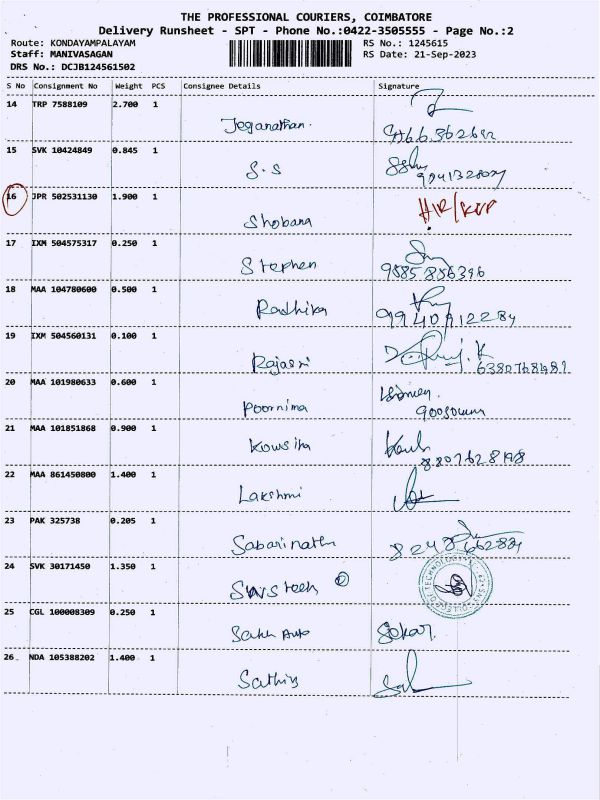 THE PROFESSIONAL COURIERS, COIMBATORE
Delivery Runsheet - SPT - Phone No.:0422-3505555 - Page No.:2
Route: KONDAYAMPALAYAM RS No.: 1245615
Staff: MANIVASAGAN RS Date: 21-Sep-2023
DRS No.: DCJB124561502
S No Consignment No Weight PCS Consignee Details Signature
14 TRP 7588109 2.700 1
Jeganathan.
15 SVK 10424849 0.845 1
S.S
16 JPR 502531130 1.900 1
Shobana
17 IXM 504575317 0.250 1
Stephen
9585 856396
18 MAA 104780600 0.500 1
Radhika
19 IXM 504560131 0.100 1
Rajasri
20 MAA 101980633 0.600 1
Poornima
21 MAA 101851868 0.900 1
Kowsika
22 MAA 861450800 1.400 1
Lakshmi
23 PAK 325738 0.205 1
Sabarinath
24 SVK 30171450 1.350 1
SNS Tech
OF TECHNOLOGY
25 CGL 100008309 0.250 1
Auto
26 NDA 105388202 1.400 1
Sathiya